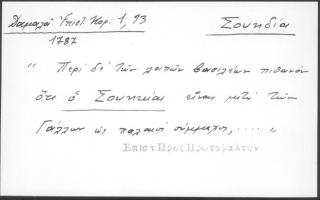 Δαμαλᾶ Ἐπιστ. Κορ. 1, 93 Σουηδία
1787
" Περὶ δὲ τῶν λοιπῶν βασιλέων πιθανόν
ὅτι ὁ Σουητίας εἶναι μετὰ τῶν
Γάλλων ὡς παλαιοὶ σύμμαχοι, .... "
Επιστ Προς Πρωτοψαλτην